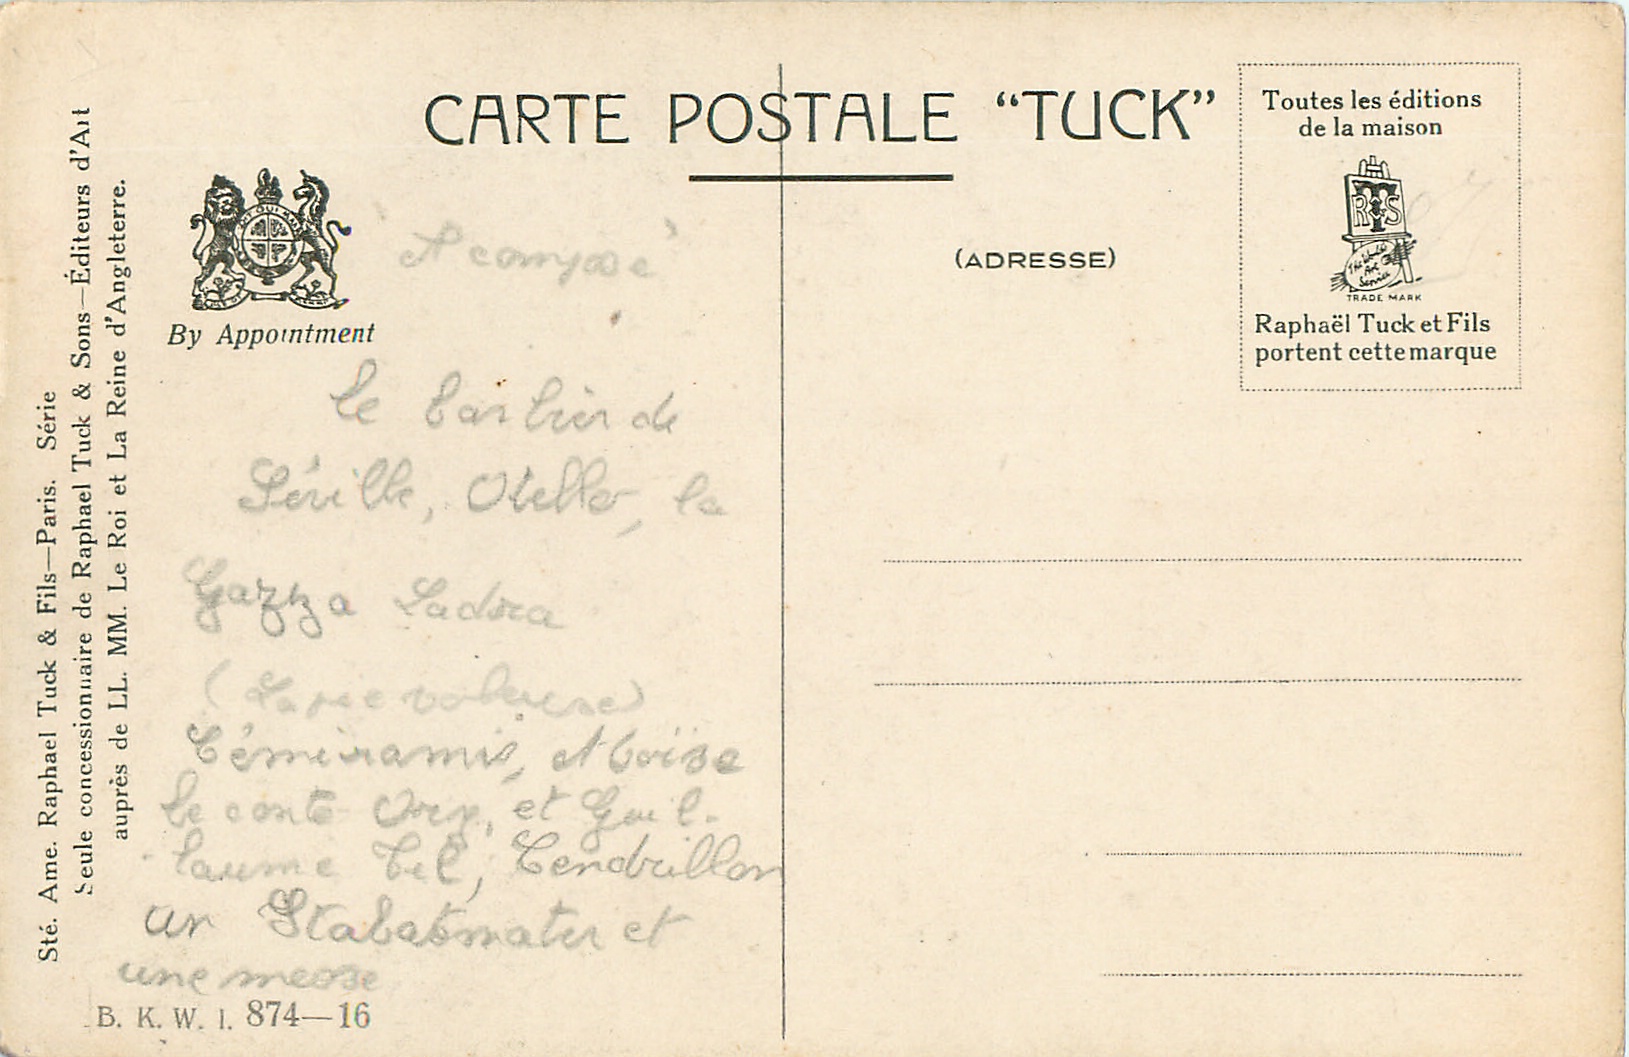 CARTE POSTALE “TUCK”
Toutes les éditions
de la maison
RTS
The World's
Art
Service
TRADE MARK
Raphaël Tuck et Fils
portent cette marque
(ADRESSE)
By Appointment
Sté. Ame. Raphael Tuck & Fils—Paris. Série
Seule concessionnaire de Raphael Tuck & Sons—Éditeurs d'Art
auprès de LL. MM. Le Roi et La Reine d'Angleterre.
A composé
le barbier de
Séville, Otello, la
Gazza Ladra
(La pie voleuse)
Sémiramis, Moïse
le conte Ory, et Guil-
laume Tel, Cendrillon
un Stabatmater et
une messe
B. K. W. I. 874—16